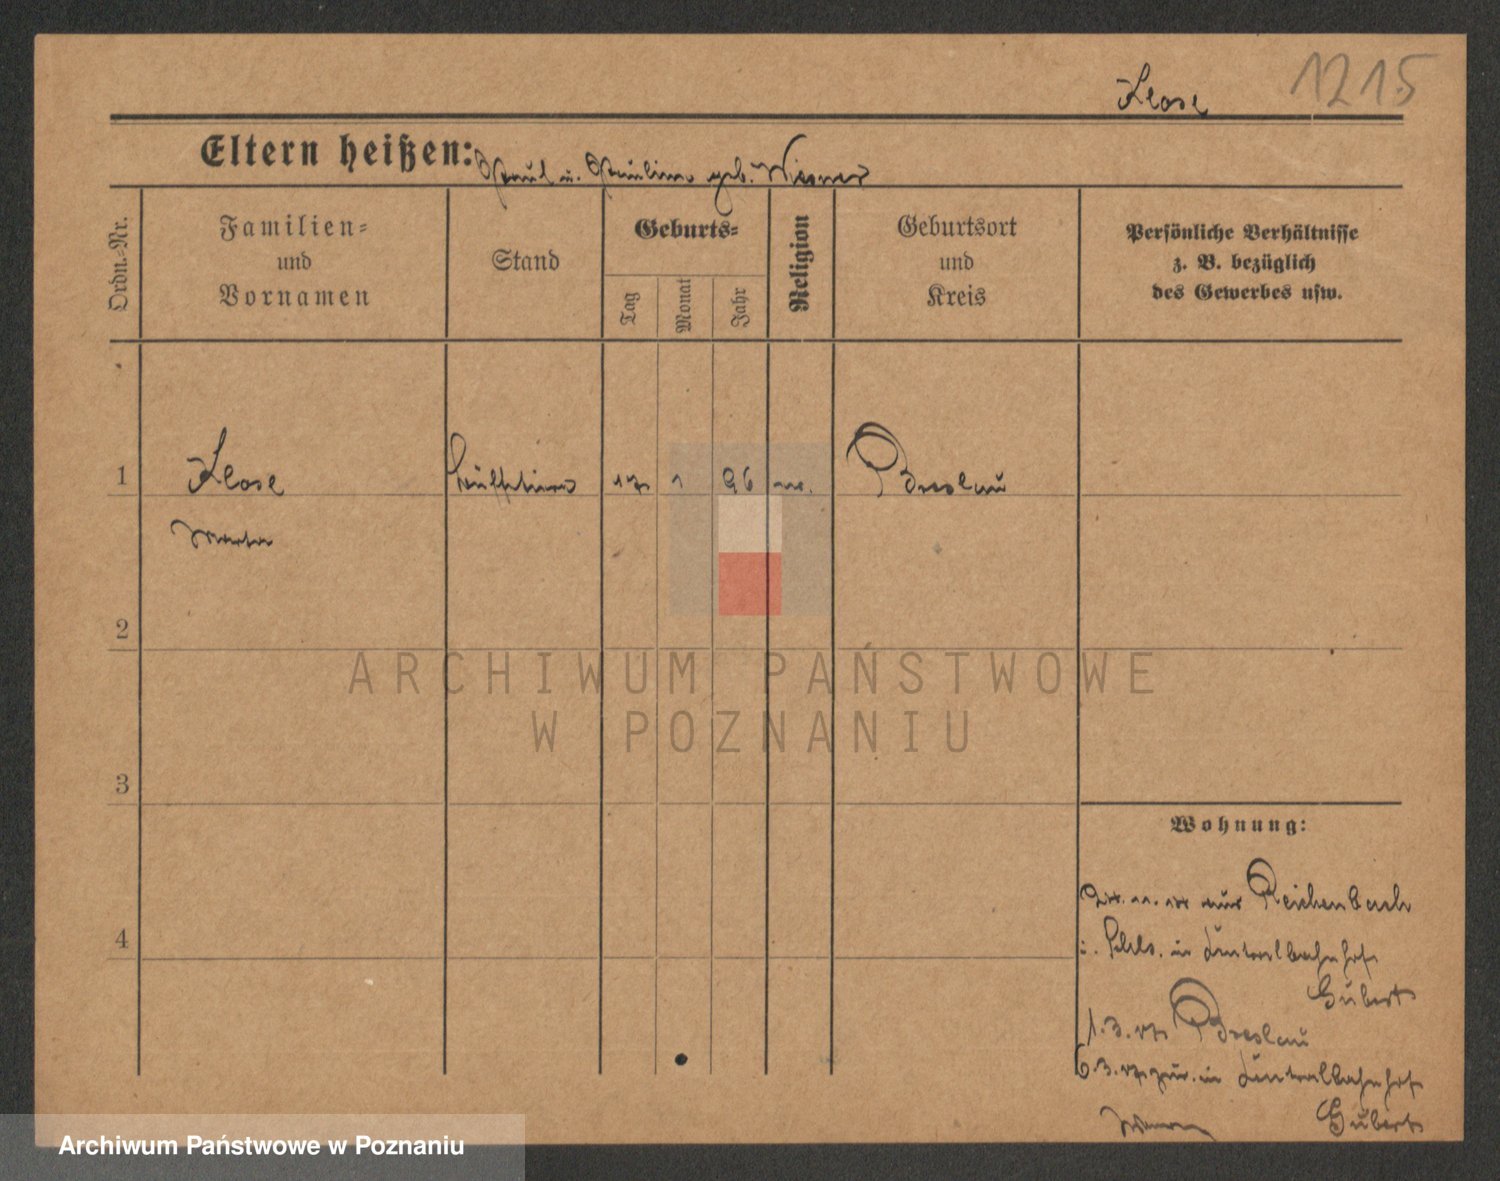 Klose 1215
Eltern heißen: Paul u. Pauline geb. Wiesner
Ordn.-Nr.
Familien-
und
Vornamen
Stand
Geburts-
Tag
Monat
Jahr
Religion
Geburtsort
und
Kreis
Persönliche Verhältnisse
z. B. bezüglich
des Gewerbes usw.
1 Klose 17 1 96 Breslau
Martha
2
ARCHIWUM PAŃSTWOWE
W POZNANIU
3
Wohnung:
aus Reichenbach
i. Schles. in Zentralbahnhof
4
1.3.17 Breslau
6.3.17 zur. in Zentralbahnhof
Archiwum Państwowe w Poznaniu